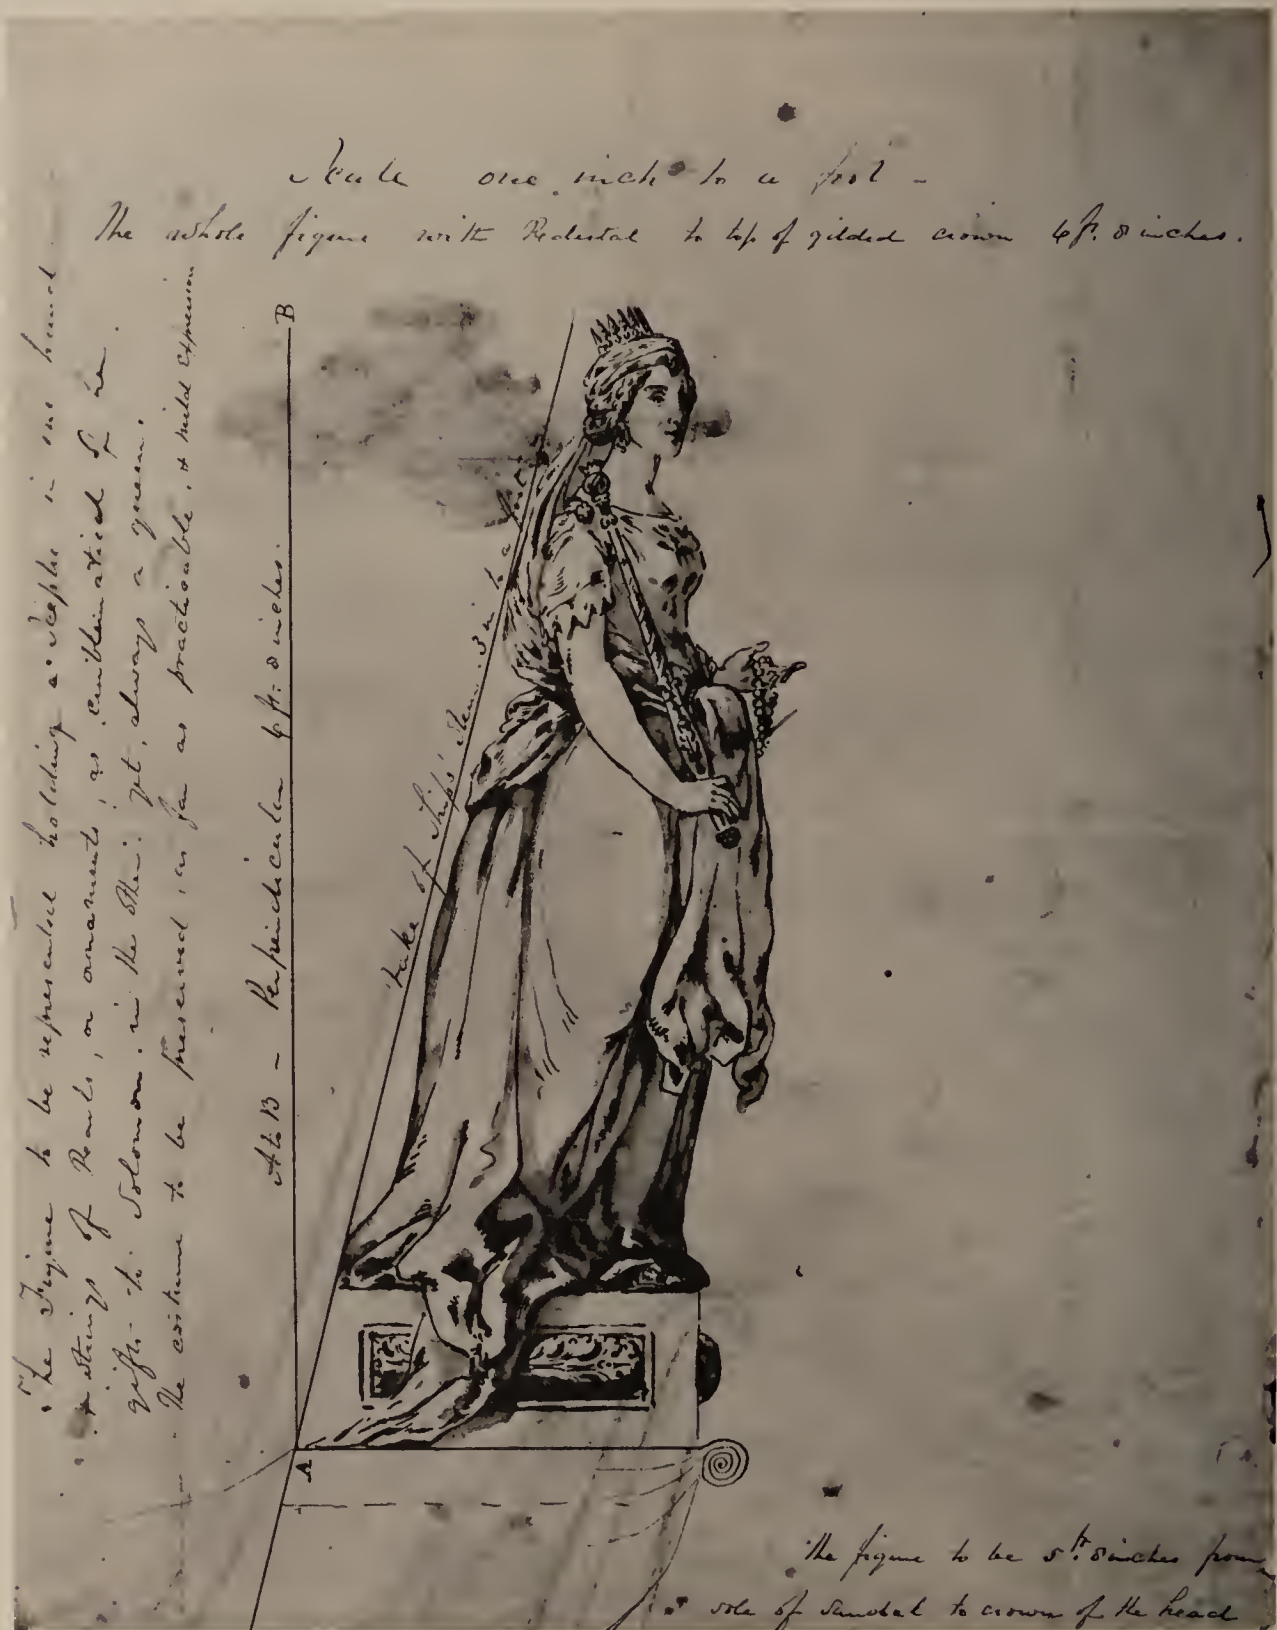 Scale one inch to a foot -
The whole figure with Pedestal to top of gilded crown 6 ft. 8 inches.
The Figure to be represented holding a sceptre in one hand
& strings of Pearls, or ornaments, as emblematical of her
gifts to Solomon, in the other: yet, always a queen.
The costume to be preserved, as far as practicable, & mild expression
A to B - Perpendicular 6 ft. 8 inches.
Rake of Ships' Stem. 3 in to a foot
B
A
The figure to be 5 ft. 8 inches from
sole of Sandal to crown of the head